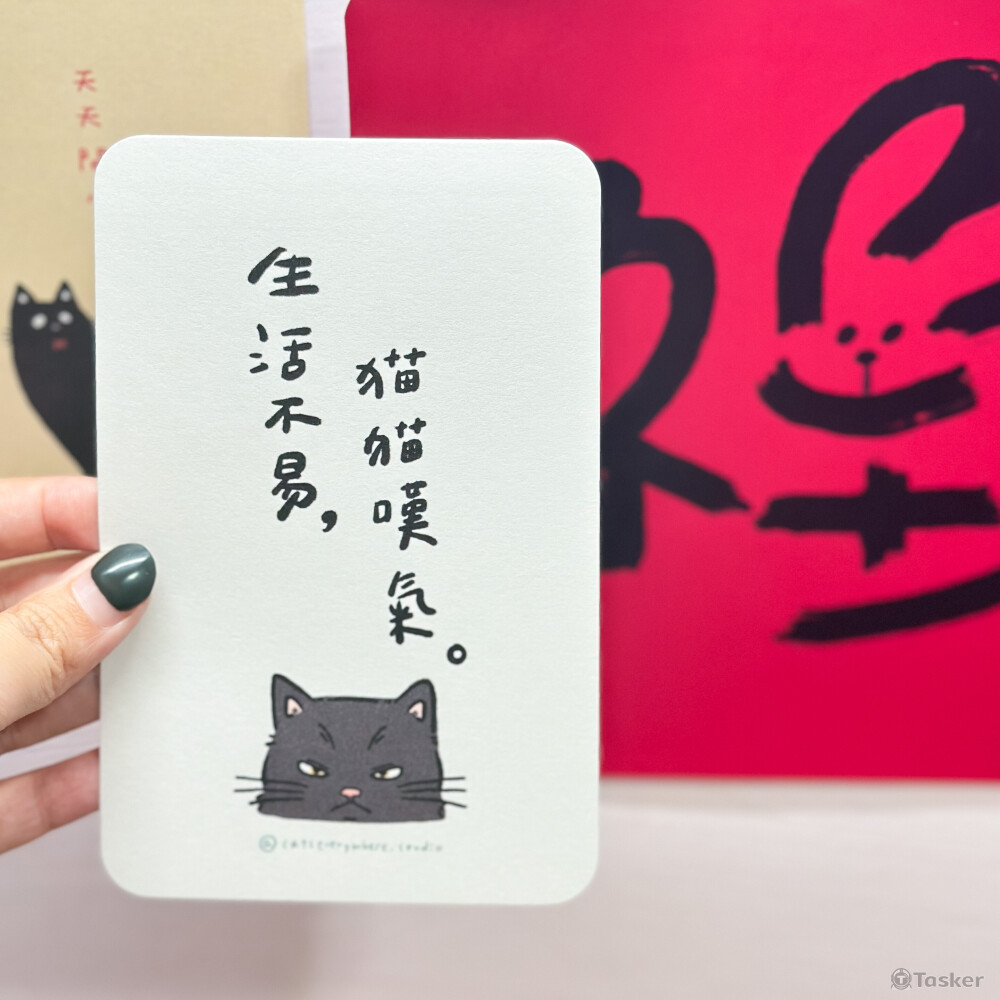 生活不易，
猫猫嘆氣。
@catseverywhere.studio
天天
Tasker